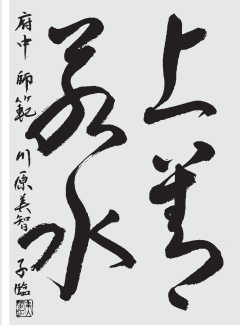 上善
若水
府中 師範 川原美智子臨